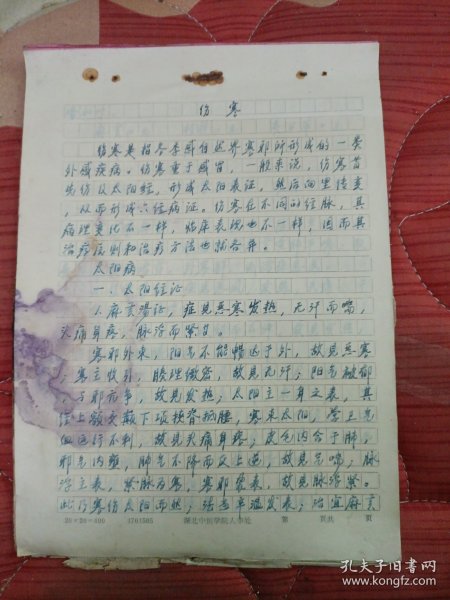 伤寒
伤寒是指冬季感自然界寒邪所形成的一类
外感疾病。伤寒重于感冒，一般来说，伤寒首
先伤及太阳经，形成太阳表证，然后向里传变
，从而形成六经病证。伤寒在不同的经脉，其
病理变化不一样，临床表现也不一样，因而其
治疗原则和治疗方法也就各异。
太阳病
一、太阳经证
1.麻黄汤证，症见恶寒发热，无汗而喘，
头痛身疼，脉浮而紧者。
寒邪外来，阳气不能畅达于外，故见恶寒
；寒主收引，腠理緻密，故见无汗；阳气被郁
，与邪元争，故见发热；太阳主一身之表，其
经上额交巅下项挟脊抵腰，寒束太阳，营卫气
血运行不利，故见头痛身疼；皮毛内合于肺，
邪气内壅，肺气不降而反上逆，故见气喘；脉
浮主表，紧脉为寒，寒邪袭表，故见脉浮紧。
此乃寒伤太阳而然；法当辛温发表；治宜麻黄
20×20=400 3701585 湖北中医学院人事处 第 页共 页
孔夫子旧书网
www.kongfz.com